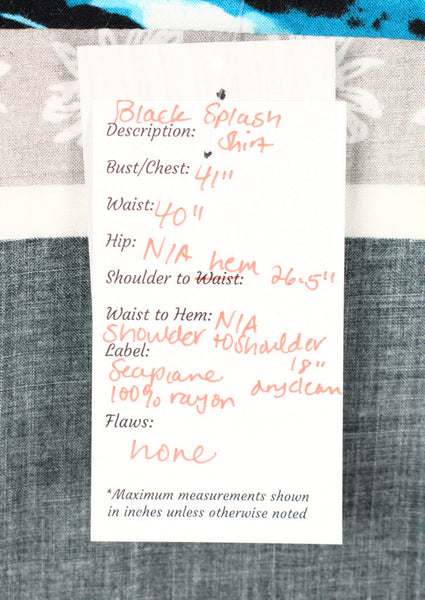 Black Splash
Description: Shirt
Bust/Chest: 41"
Waist: 40"
Hip: N/A
Shoulder to Waist: hem 26.5"
Waist to Hem: N/A
Shoulder to Shoulder
Label: 18"
Seaplane dryclean
100% rayon
Flaws:
none
*Maximum measurements shown
in inches unless otherwise noted